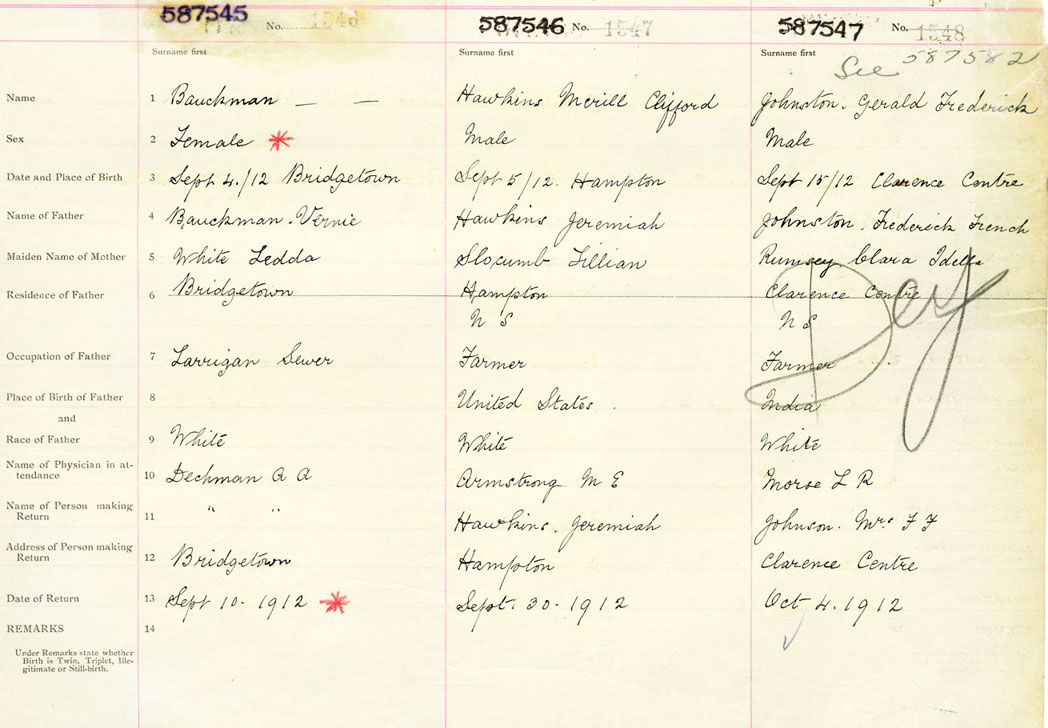 587545 No. 1546 587546 No. 1547 587547 No. 1548
Surname first Surname first Surname first
See 587582
Name 1 Bauckman — — Hawkins Merill Clifford Johnston. Gerald Frederick
Sex 2 Female * Male Male
Date and Place of Birth 3 Sept 4./12 Bridgetown Sept 5/12. Hampton Sept 15/12 Clarence Centre
Name of Father 4 Bauckman. Vernie Hawkins Jeremiah Johnston. Frederick French
Maiden Name of Mother 5 White Ledda Slocumb Lillian Rumsey Clara Idella
Residence of Father 6 Bridgetown Hampton Clarence Centre
N S N S
Occupation of Father 7 Larrigan Sewer Farmer Farmer
Place of Birth of Father 8 United States. India
and
Race of Father 9 White White White
Name of Physician in at-
tendance 10 Dechman A A Armstrong M E Morse L R
Name of Person making
Return 11 " " Hawkins. Jeremiah Johnson. Mrs F F
Address of Person making
Return 12 Bridgetown Hampton Clarence Centre
Date of Return 13 Sept 10. 1912 * Sept. 30. 1912 Oct 4. 1912
REMARKS 14
Under Remarks state whether
Birth is Twin, Triplet, Ille-
gitimate or Still-birth.